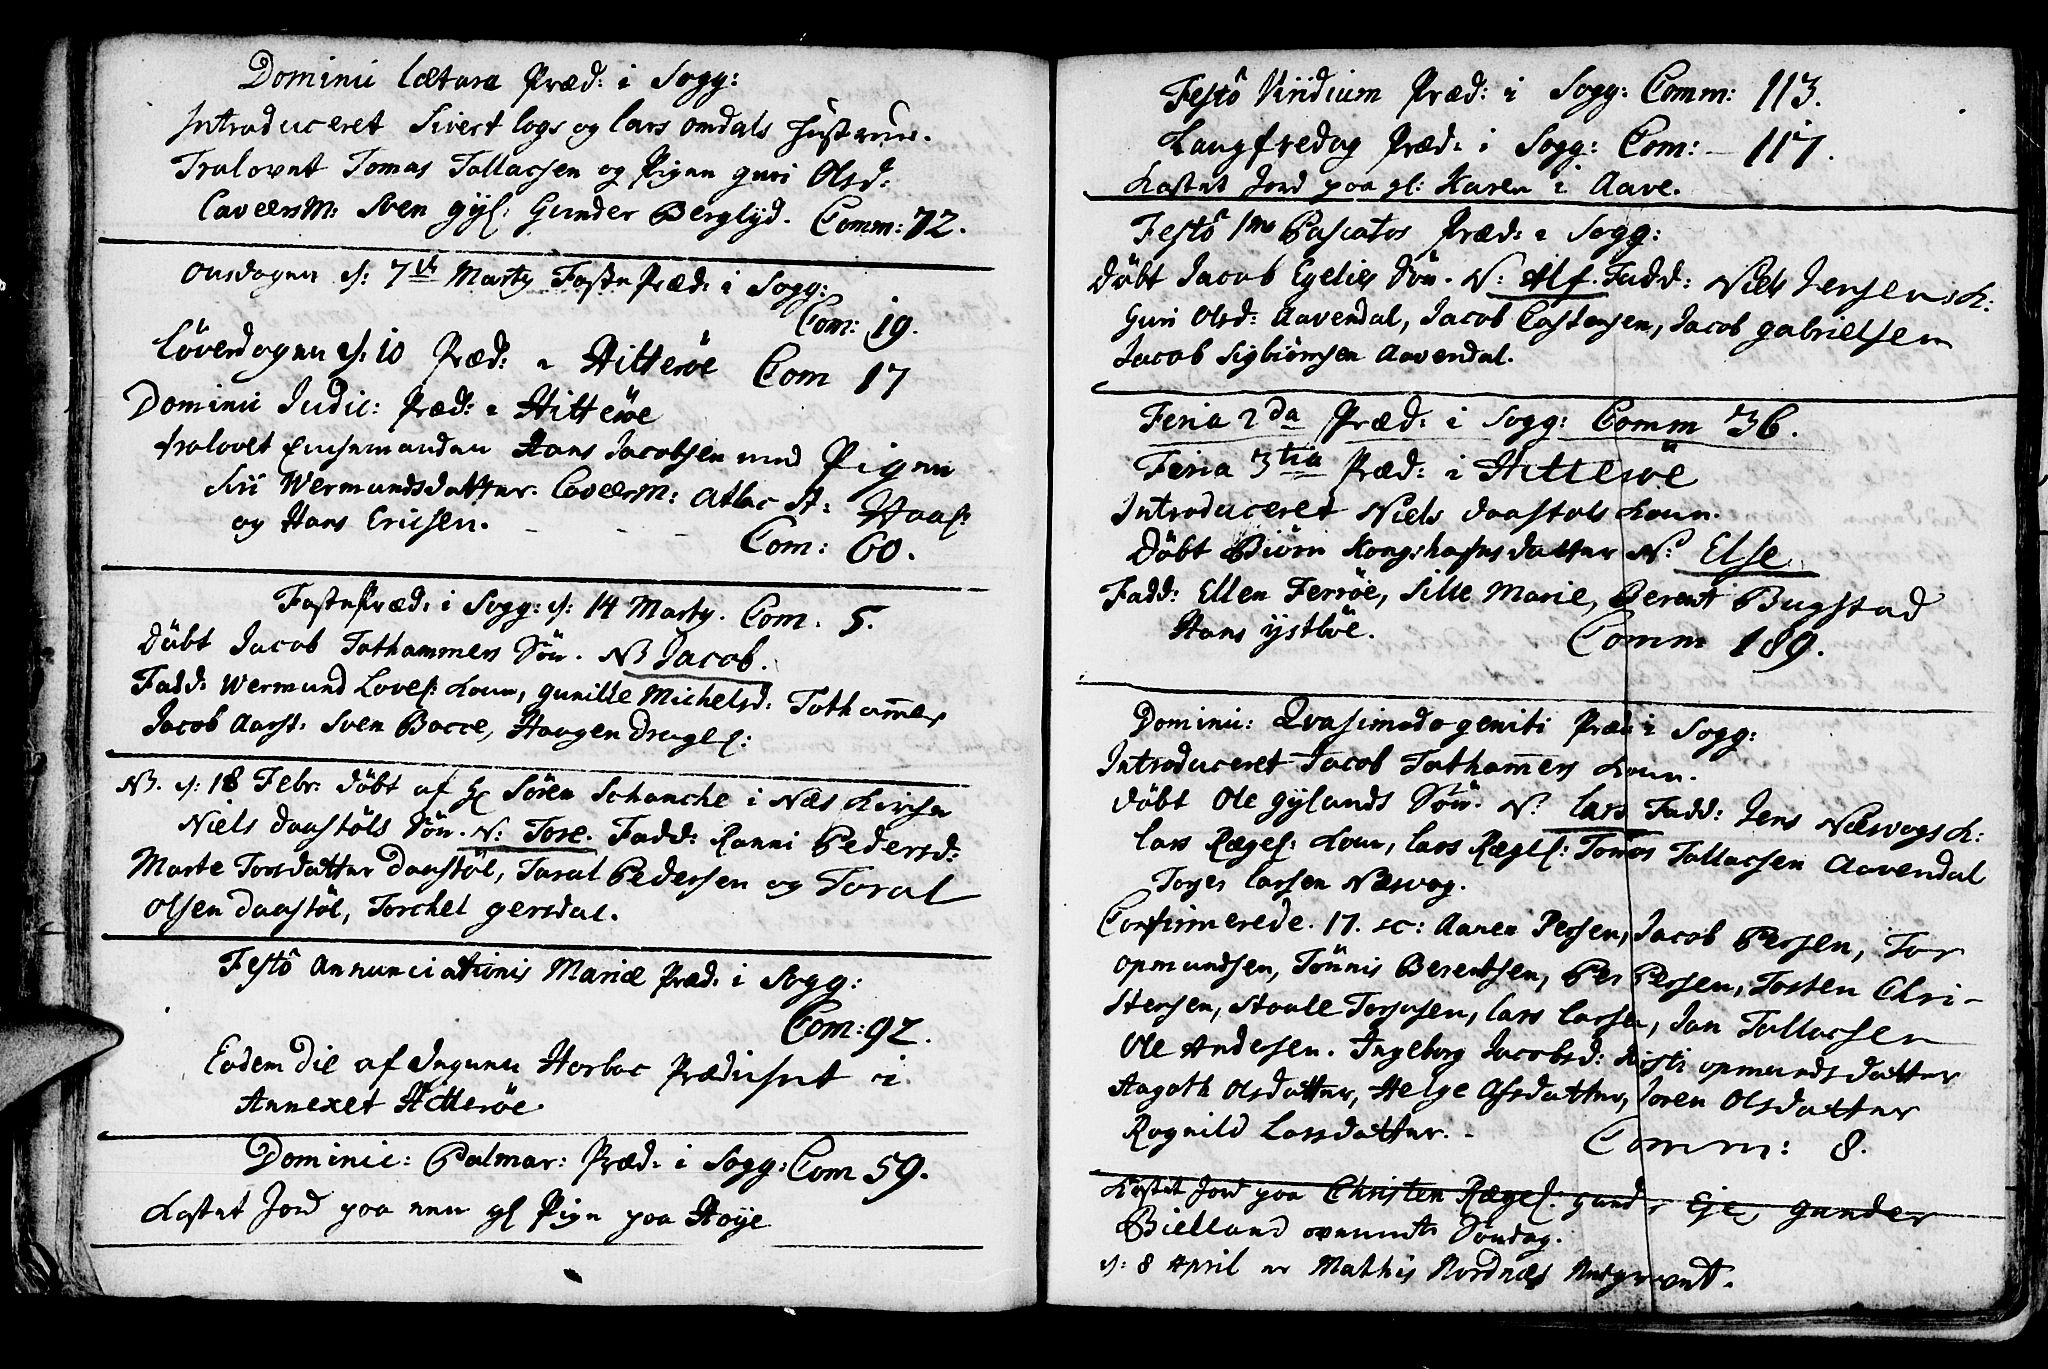 Dominic Lætare Præd: i Sogg:
Introduceret Sivert Logs og Lars Omdals Hustruer.
Trolovet Tomas Tallacsen og Pigen Guri Olsd:
Caveerm: Sven Gyl: Gunder Berglyd. Comm: 72.
Onsdagen d: 7de Marty Faste Præd: i Sogg:
Com: 19.
Løverdagen d: 10 Præd: i Hitterøe Com 17
Dominic Judic: Præd: i Hitterøe
trolovet Enchemanden Hans Jacobsen med Pigen
Siri Wermundsdatter. Caveerm: Atlac St: Haas:
og Hans Ericsen. - - - - Com: 60.
Faste Præd: i Sogg: d: 14 Marty. Com. 5.
Døbt Jacob Tothammers Søn. N Jacob.
Fadd: Wermund Loves: Kone, Gunille Michelsd: Totham̄er
Jacob Aarst: Sven Bocce, Haagen Dragel:
NB. d: 18 Febr: Døbt af H Søren Schanche i Næs Kircke
Niels Daastøls Søn. N: Tore. Fadd: Ranni Pedersd:
Marte Torsdatter Daastøl, Taral Pedersen og Toral
Olsen Daastøl, Torchel Gersdal.
Festo Annunciationis Mariæ Præd: i Sogg:
Com: 92.
Eodem Die af Ingenu Horboe Prædicket i
Annexet Hitterøe
Dominic: Palmar: Præd: i Sogg: Com 59.
Kastet Jord paa een gl Pige paa Høye
Festo Viridium Præd: i Sogg: Comm: 113.
Langfredag Præd: i Sogg: Com: - 117.
Kastet Jord paa gl: Karen i Aave.
Festo 1mo Pascatos Præd: i Sogg:
Døbt Jacob Egelies Søn. N: Alf. Fadd: Niels Jensens K:
Guri Olsd: Aavendal, Jacob Castensen, Jacob Gabrielsen
Jacob Sigbiørnsen Aavendal.
Feria 2da Præd: i Sogg: Comm 36.
Feria 3tia Præd: i Hitterøe
Introduceret Niels Daastøls Kone.
Døbt Biørn Kongshafns datter N: Else
Fadd: Ellen Ferrøe, Sille Marie, Berent Bugstad
Hans Ystbøe. Comm 189.
Dominic: Qvasimodogeniti Præd: i Sogg:
Introduceret Jacob Totham̄ers Kone.
Døbt Ole Gylands Søn. N: Lars Fadd: Jens Næsvogs K:
Lars Rægef: Kone, Lars Rægef: Tomas Tallacsen Aavendal
Torjer Larsen Næsvog.
Confirmerede. 17. sc: Aanen Persen, Jacob Persen, Tor
Opmundsen, Tønnis Berentsen, Per Persen, Tosten Chri-
stensen, Staale Torjusen, Lars Larsen, Jan Tallacsen
Ole Andersen. Ingeborg Jacobsd: Kisti Opmundsdatter
Aagath Olsdatter, Helge Asdatter, Joren Olsdatter
Rognild Larsdatter. - Comm: 8.
Kastet Jord paa Christen Rægef: Gund: Eje Gunder
Bielland ovennt Søndag.
d: 8 April er Mathis Nordnæs Nedgravet.